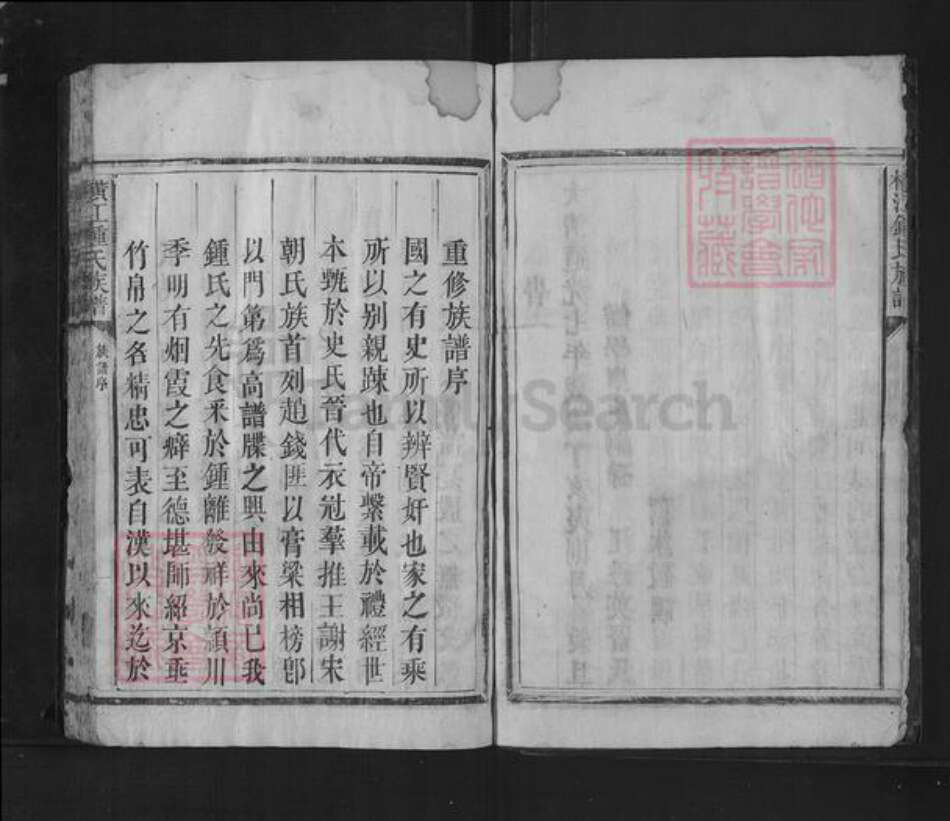 橫江鍾氏族譜
重修族譜序
國之有史所以辨賢奸也家之有乘
所以別親踈也自帝繫載於禮經世
本甦於史氏晉代衣冠羣推王謝宋
朝氏族首列趙錢匪以膏粱相榜卽
以門第爲高譜牒之興由來尚已我
鍾氏之先食釆於鍾離發祥於潁川
季明有烟霞之癖至德堪師紹京垂
竹帛之名精忠可表自漢以來迄於
橫江鍾氏族譜
族譜序
FamilySearch